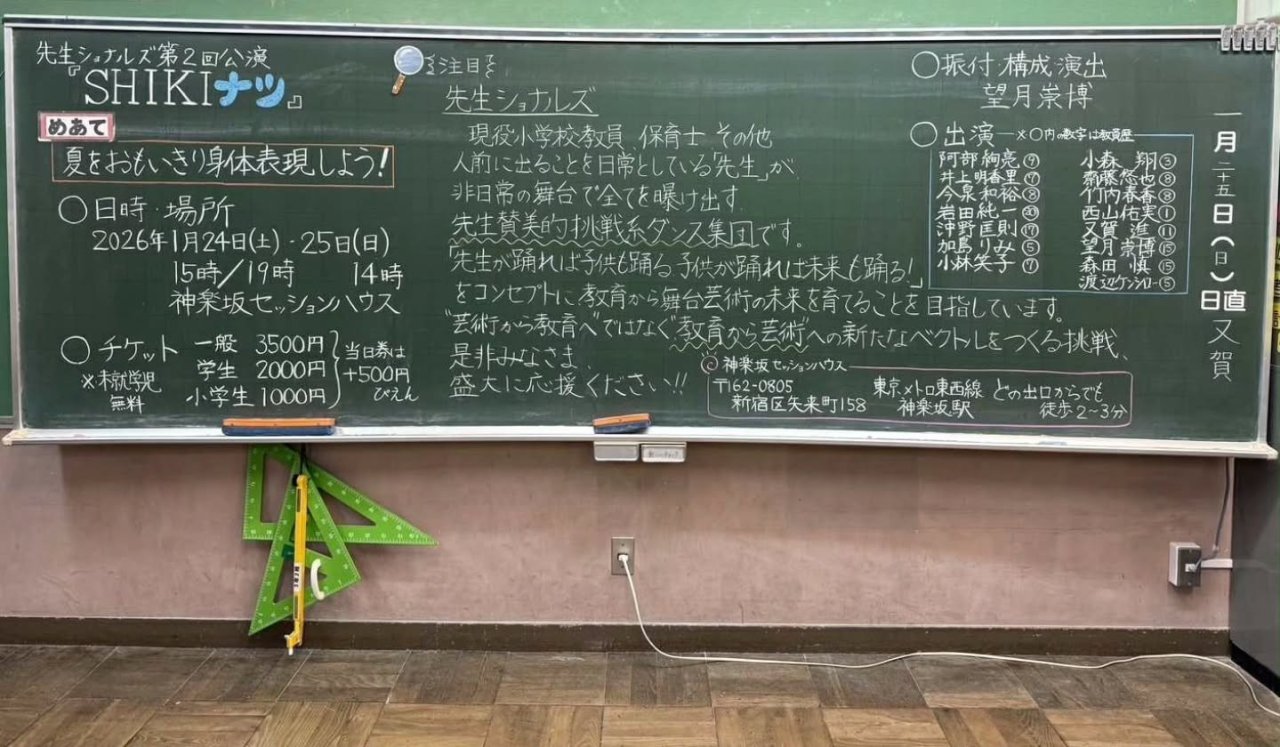 先生ショナルズ第2回公演
『SHIKIナツ』
めあて
夏をおもいきり身体表現しよう!
○日時・場所
2026年1月24日(土)・25日(日)
15時/19時 14時
神楽坂セッションハウス
○チケット
※未就学児
無料
一般 3500円
学生 2000円
小学生 1000円
当日券は
+500円
ぴえん
注目
先生ショナルズ
現役小学校教員 保育士 その他
人前に出ることを日常としている「先生」が
非日常の舞台で全てを曝け出す
先生賛美的挑戦系ダンス集団です。
「先生が踊れば子供も踊る、子供が踊れば未来も踊る!」
をコンセプトに教育から舞台芸術の未来を育てることを目指しています。
"芸術から教育へ"ではなく"教育から芸術"への新たなベクトルをつくる挑戦、
是非みなさま、
盛大に応援ください!!
◎神楽坂セッションハウス
〒162-0805
新宿区矢来町158
東京メトロ東西線
神楽坂駅
どの出口からでも
徒歩2~3分
○振付 構成 演出
望月崇博
○出演 ※○内の数字は教員歴
阿部絢亮⑨
井上明香里⑦
今泉和裕⑧
岩田純一⑳
沖野匡則⑰
加島りみ⑤
小林笑子⑦
小森 翔③
齋藤悠也⑧
竹内春香⑧
西山佑実①
又賀 進⑪
望月崇博⑮
森田 慎⑮
渡辺ケンシロー⑤
一月二十五日(日)
日直
又賀